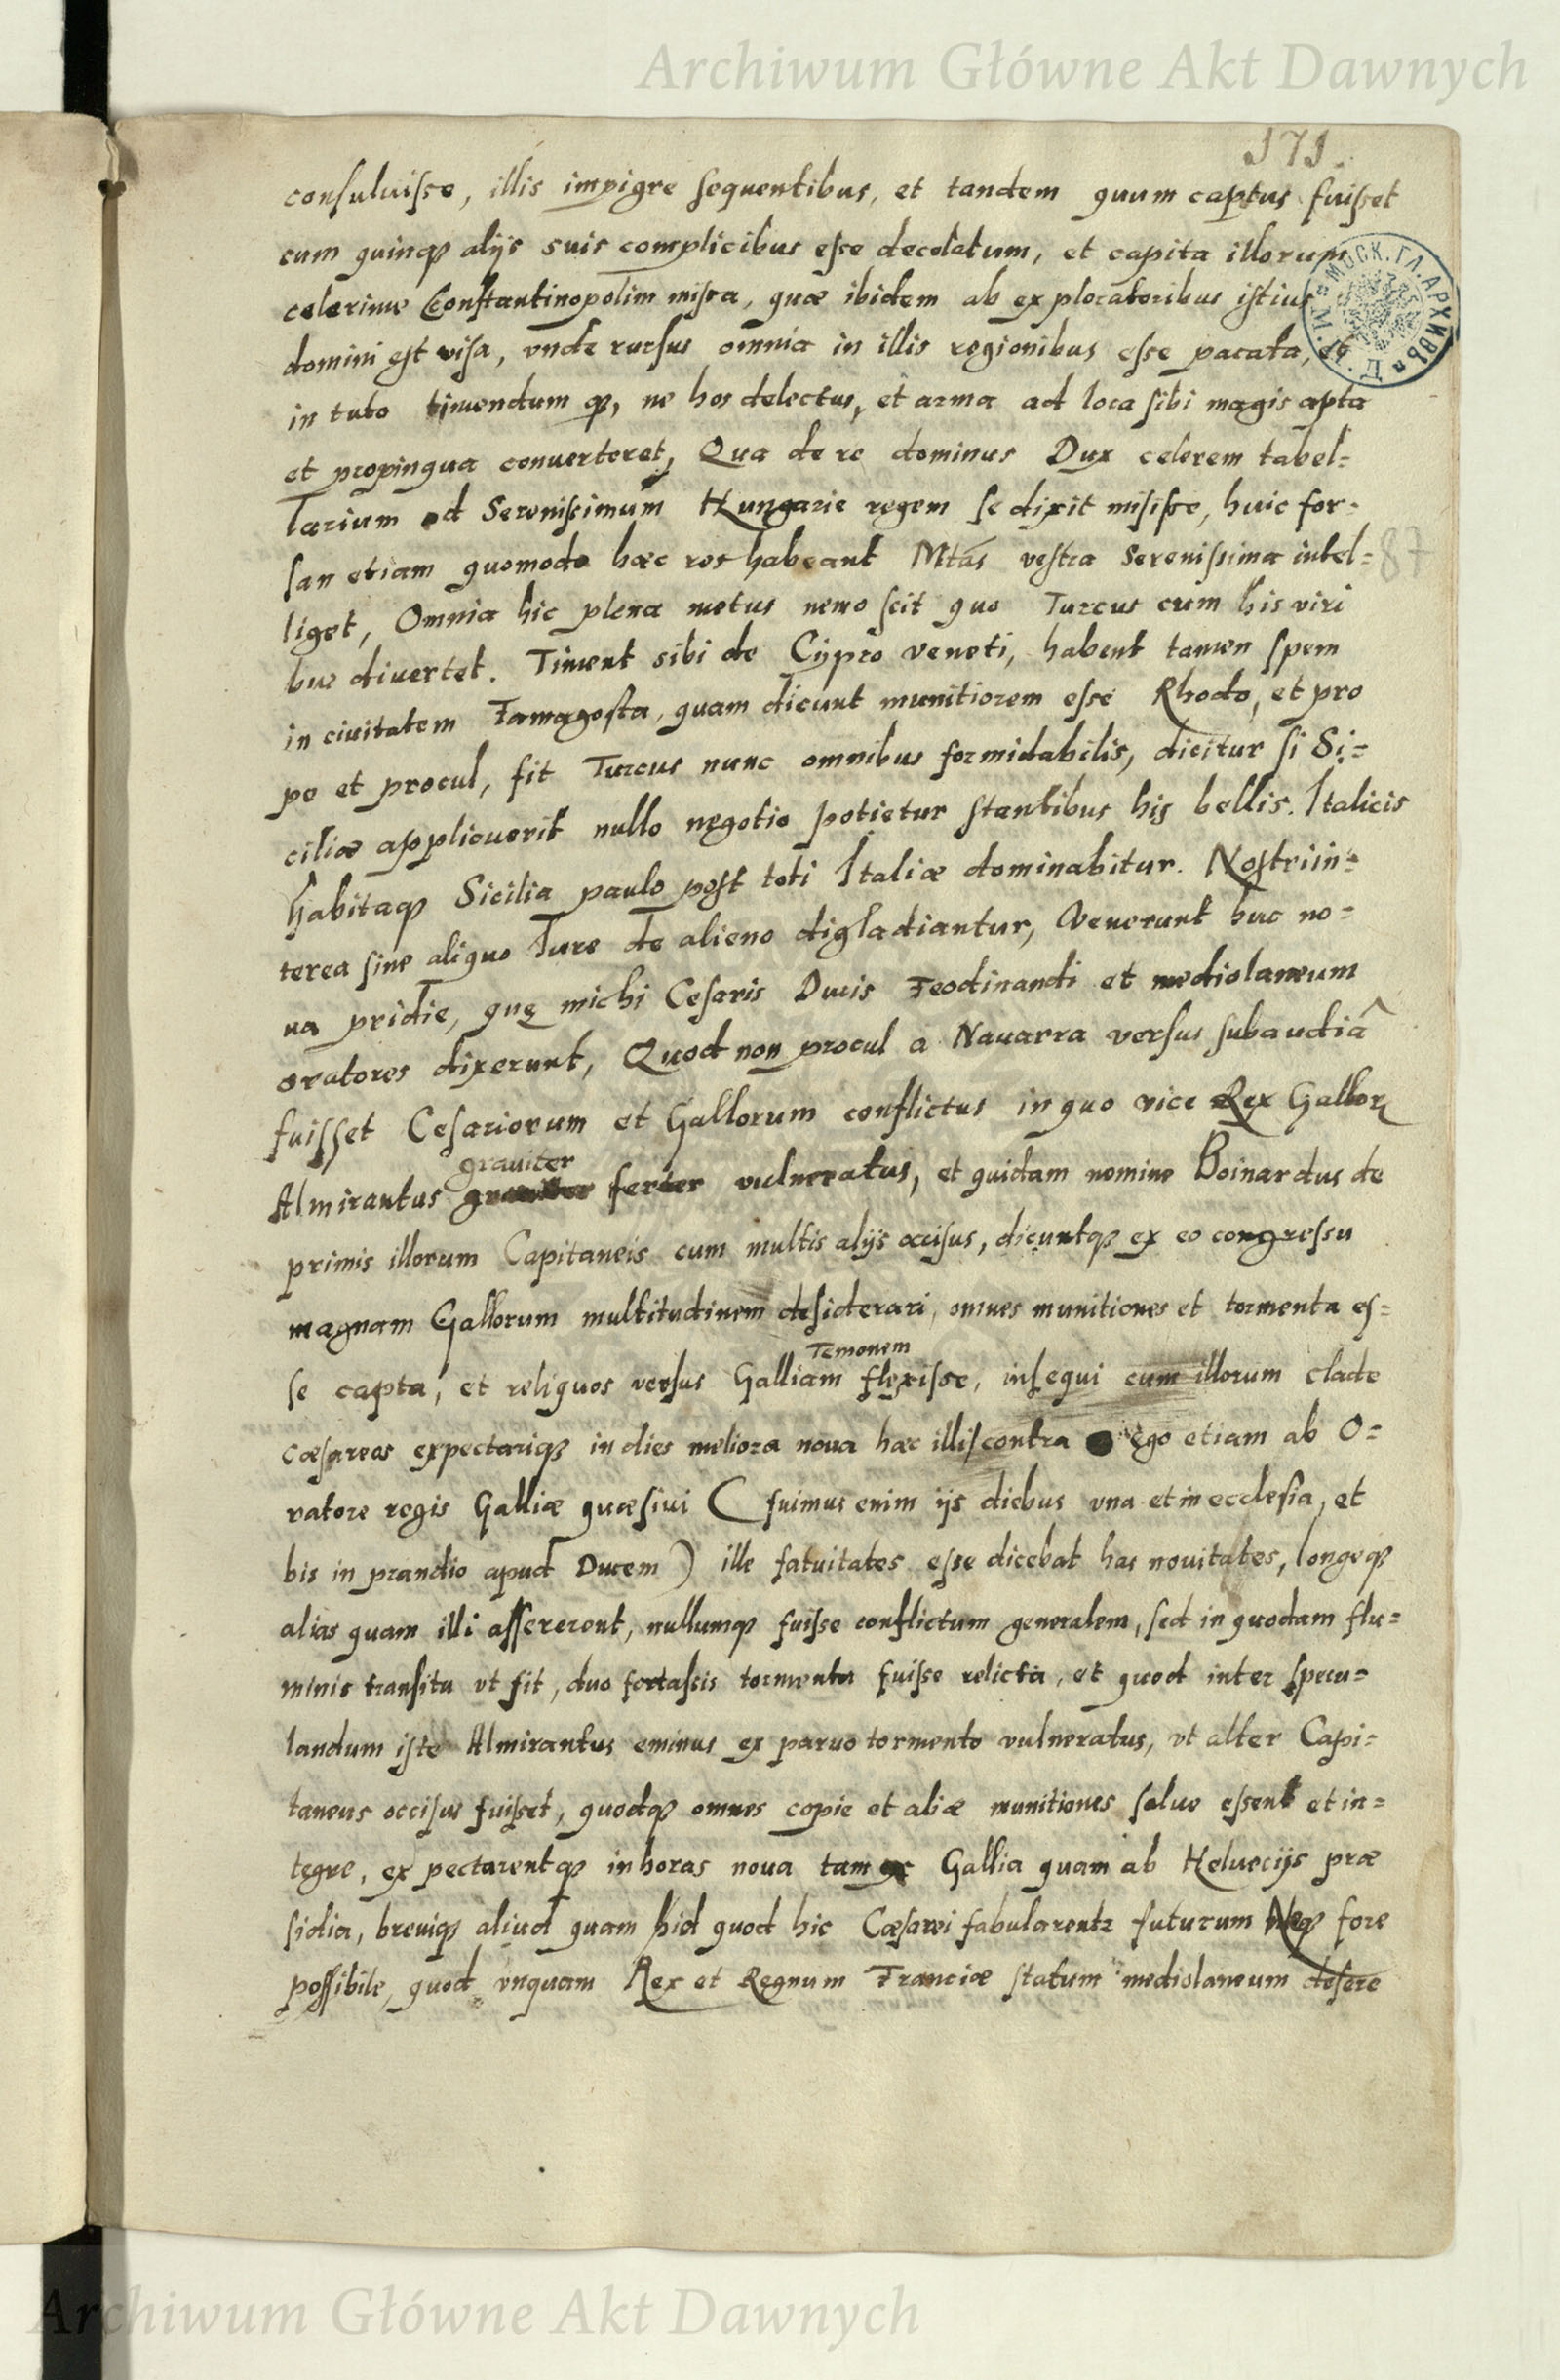 Archiwum Główne Akt Dawnych
171.
consuluisse, illis impigre sequentibus, et tandem quum captus fuisset
cum quinqꝫ alijs suis complicibus esse decolatum, et capita illorum
celerime Constantinopolim missa, quæ ibidem ab exploratoribus istius
domini est visa, vnde rursus omnia in illis regionibus esse pacata, et
in tuto timendum qꝫ, ne hos delectus, et arma ad loca sibi magis apta
et propinqua conuerteret, Qua de re dominus Dux celerem tabel=
larium ad Serenissimum Hungarie regem se dixit misisse, huic for=
san etiam quomodo hæc res habeant Mtas vestra Serenissima intel=
87
liget, Omnia hic plena metus nemo scit quo Turcus cum his viri
bus diuertet. Timent sibi de Cypro veneti, habent tamen spem
in ciuitatem Famagosta, quam dicunt munitiorem esse Rhodo, et pro
pe et procul, fit Turcus nunc omnibus formidabilis, dicitur si Si=
ciliæ applicuerit nullo negotio potietur stantibus his bellis. Italicis
habitaqꝫ Sicilia paulo post toti Italiæ dominabitur. Nostri in=
terea sine aliquo Iure de alieno digladiantur, Venerunt huc no=
ua pridie, quę michi Cesaris Ducis Feodinandi et mediolaneum
oratores dixerunt, Quod non procul a Nauarra versus subaudiā
fuisset Cesariorum et Gallorum conflictus in quo vice Rex Gallorꝝ
graviter
Almirantus ferter vulneratus, et quidam nomine Boinardus de
primis illorum Capitaneis cum multis alijs occisus, dicuntqꝫ ex eo congressu
magnam Gallorum multitudinem desiderari, omnes munitiones et tormenta es=
Temonem
se capta, et reliquos versus Galliam flexisse, insequi cum illorum clade
cæsareos expectariqꝫ in dies meliora noua hæc illis contra ego etiam ab O=
ratore regis Galliæ quæsiui ( fuimus enim ijs diebus vna et in ecclesia, et
bis in prandio apud Ducem ) ille fatuitates esse dicebat has nouitates, longeqꝫ
alias quam illi assererent, nullumqꝫ fuisse conflictum generalem, sed in quodam flu=
minis transitu vt fit, duo fortassis tormenta fuisse relicta, et quod inter specu=
landum iste Almirantus eminus ex paruo tormento vulneratus, vt alter Capi=
taneus occisus fuisset, quodqꝫ omnes copie et aliæ munitiones salue essent et in=
tegre, expectarentqꝫ in horas noua tam ex Gallia quam ab Heluecijs præ
sidia, breuiqꝫ aliud quam id quod hic Cæsarei fabularentr futurum Neqꝫ fore
possibile, quod vnquam Rex et Regnum Franciæ statum mediolaneum desere
Archiwum Główne Akt Dawnych